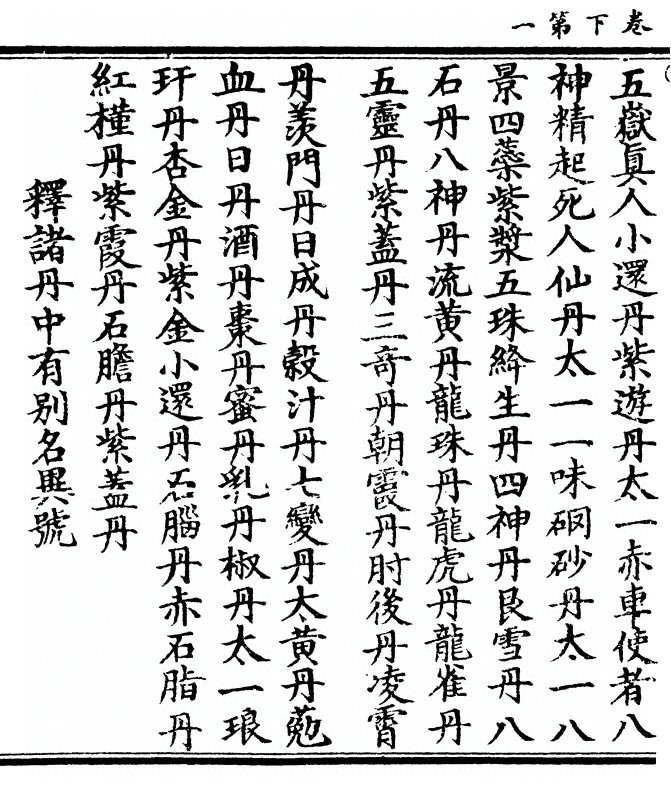 卷下第一
五嶽眞人小還丹紫遊丹太一赤車使者八
神精起死人仙丹太一一味硇砂丹太一八
景四蘂紫漿五珠絳生丹四神丹艮雪丹八
石丹八神丹流黃丹龍珠丹龍虎丹龍雀丹
五靈丹紫蓋丹三奇丹朝霞丹肘後丹凌霄
丹羨門丹日成丹穀汁丹七變丹太黃丹
血丹日丹酒丹棗丹蜜丹乳丹椒丹太一琅
玕丹杏金丹紫金小還丹石腦丹赤石脂丹
紅槿丹紫霞丹石膽丹紫蓋丹
釋諸丹中有別名異號